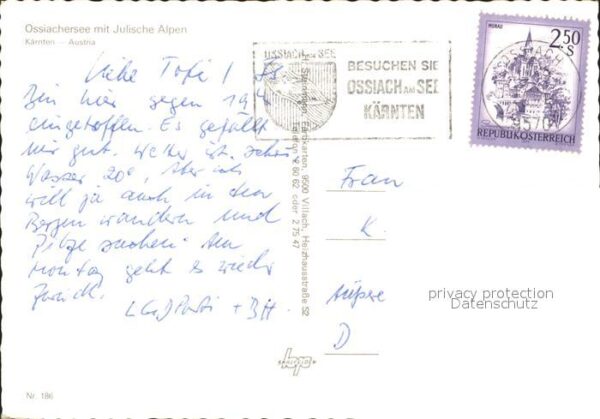 Ossiachersee mit Julische Alpen
Kärnten — Austria
Liebe
Bin hier gegen
eingetroffen. Es gefällt
mir gut. Wetter ist schön
Wasser 20°, Aber ich
will ja auch in den
Bergen wandern und
Pilze suchen. Am
Montag geht es wieder
zurück.
OSSIACH AM SEE
BESUCHEN SIE
OSSIACH AM SEE
KÄRNTEN
MURAU
2.50
S
REPUBLIK ÖSTERREICH
OSSIACH
9570
Farbkarten, 9500 Villach, Heizhausstraße 52
Telefon 2 80 62 oder 2 75 47
Frau
K.
D
privacy protection
Datenschutz
Nr. 186